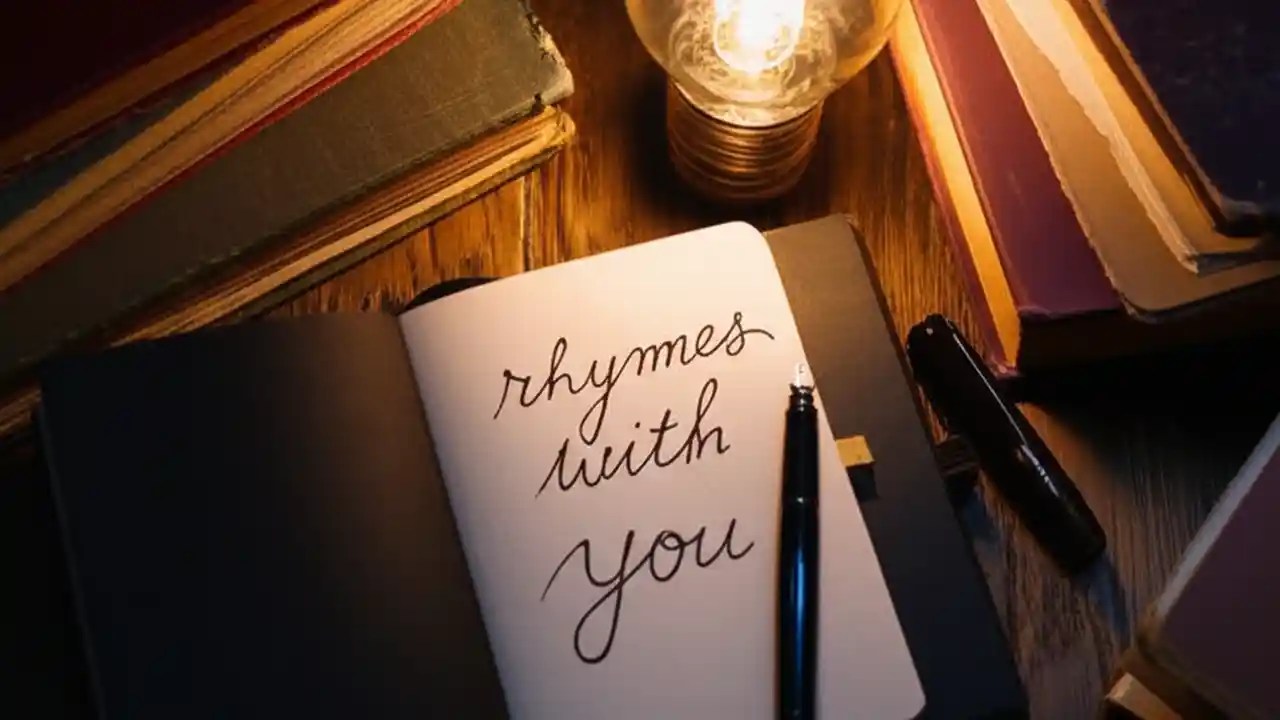 rhymes
with
you